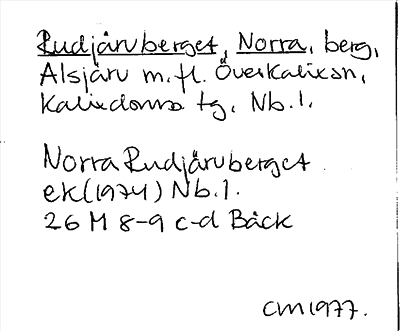 Rudjärvberget, Norra, berg,
Alsjärv m.fl. Överkalixsn,
Kalixdomsa tg, Nb.l.
Norra Rudjärvberget
ek (1974) Nb.l.
26 M 8-9 c-d Bäck
CM 1977.